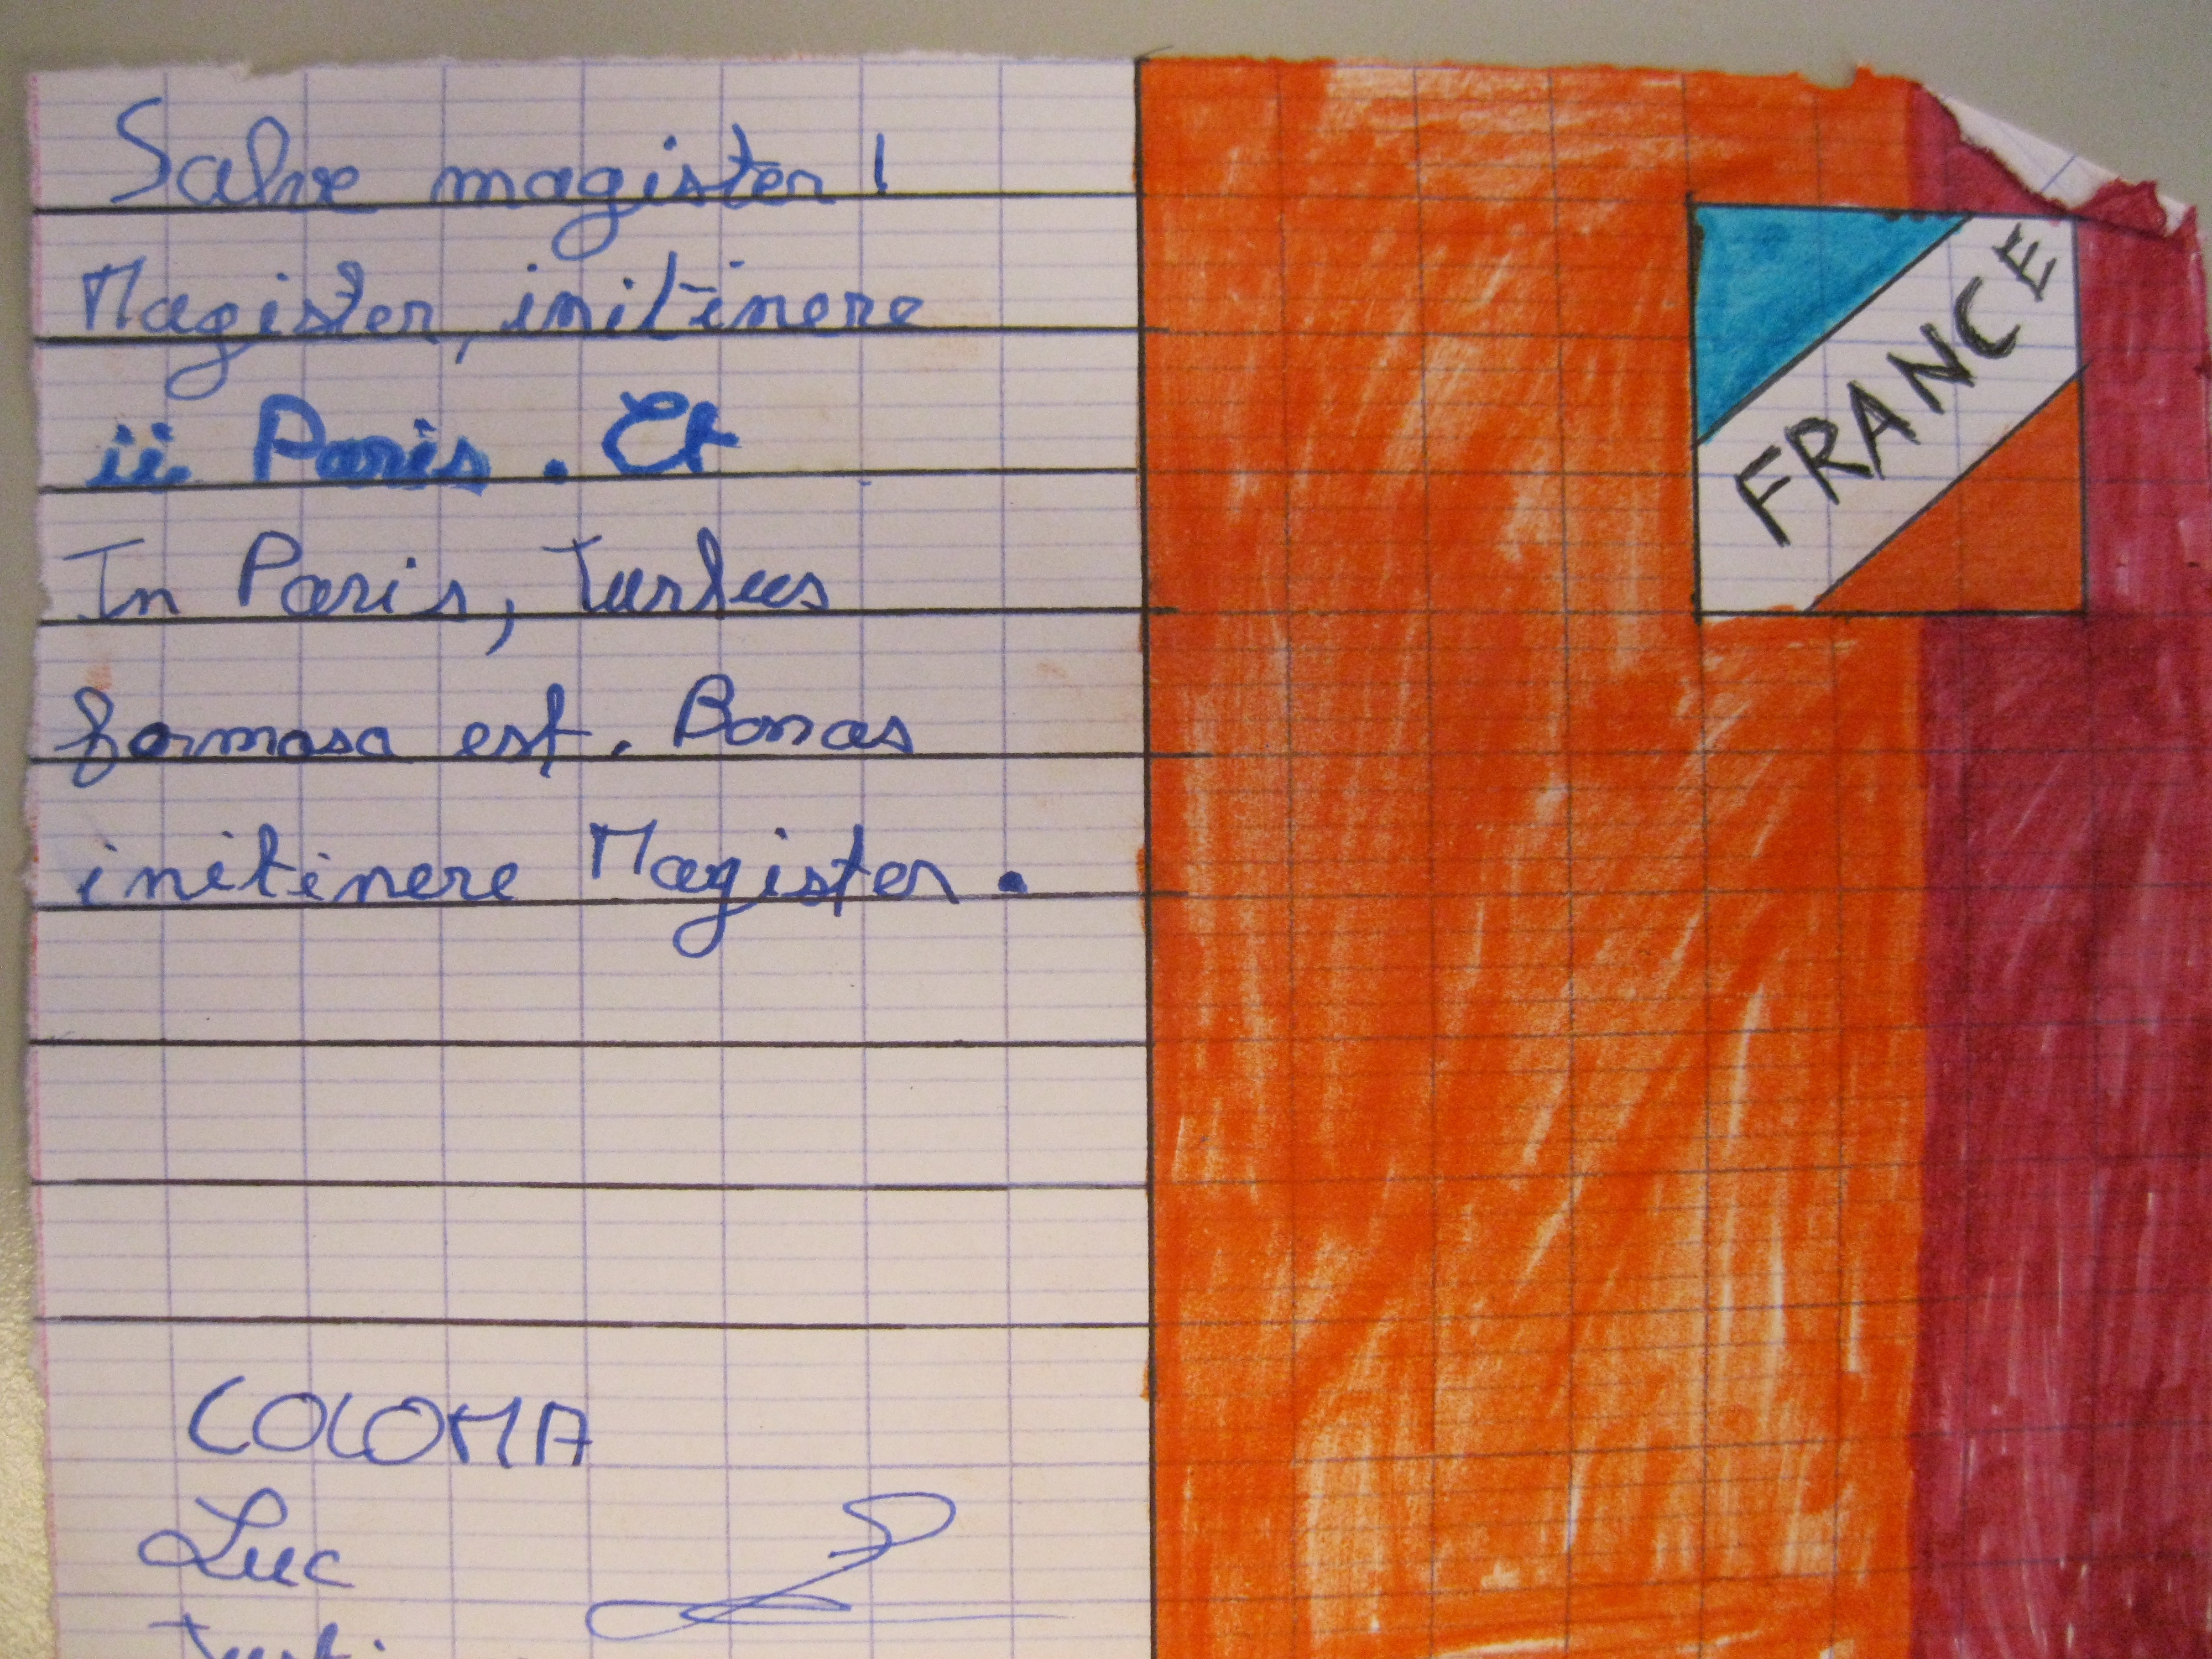 Salve magister !
Magister, initinere
ii Paris. Et
In Paris, Turkus
formosa est. Bonas
initinere Magister.
COLOMA
Luc
FRANCE